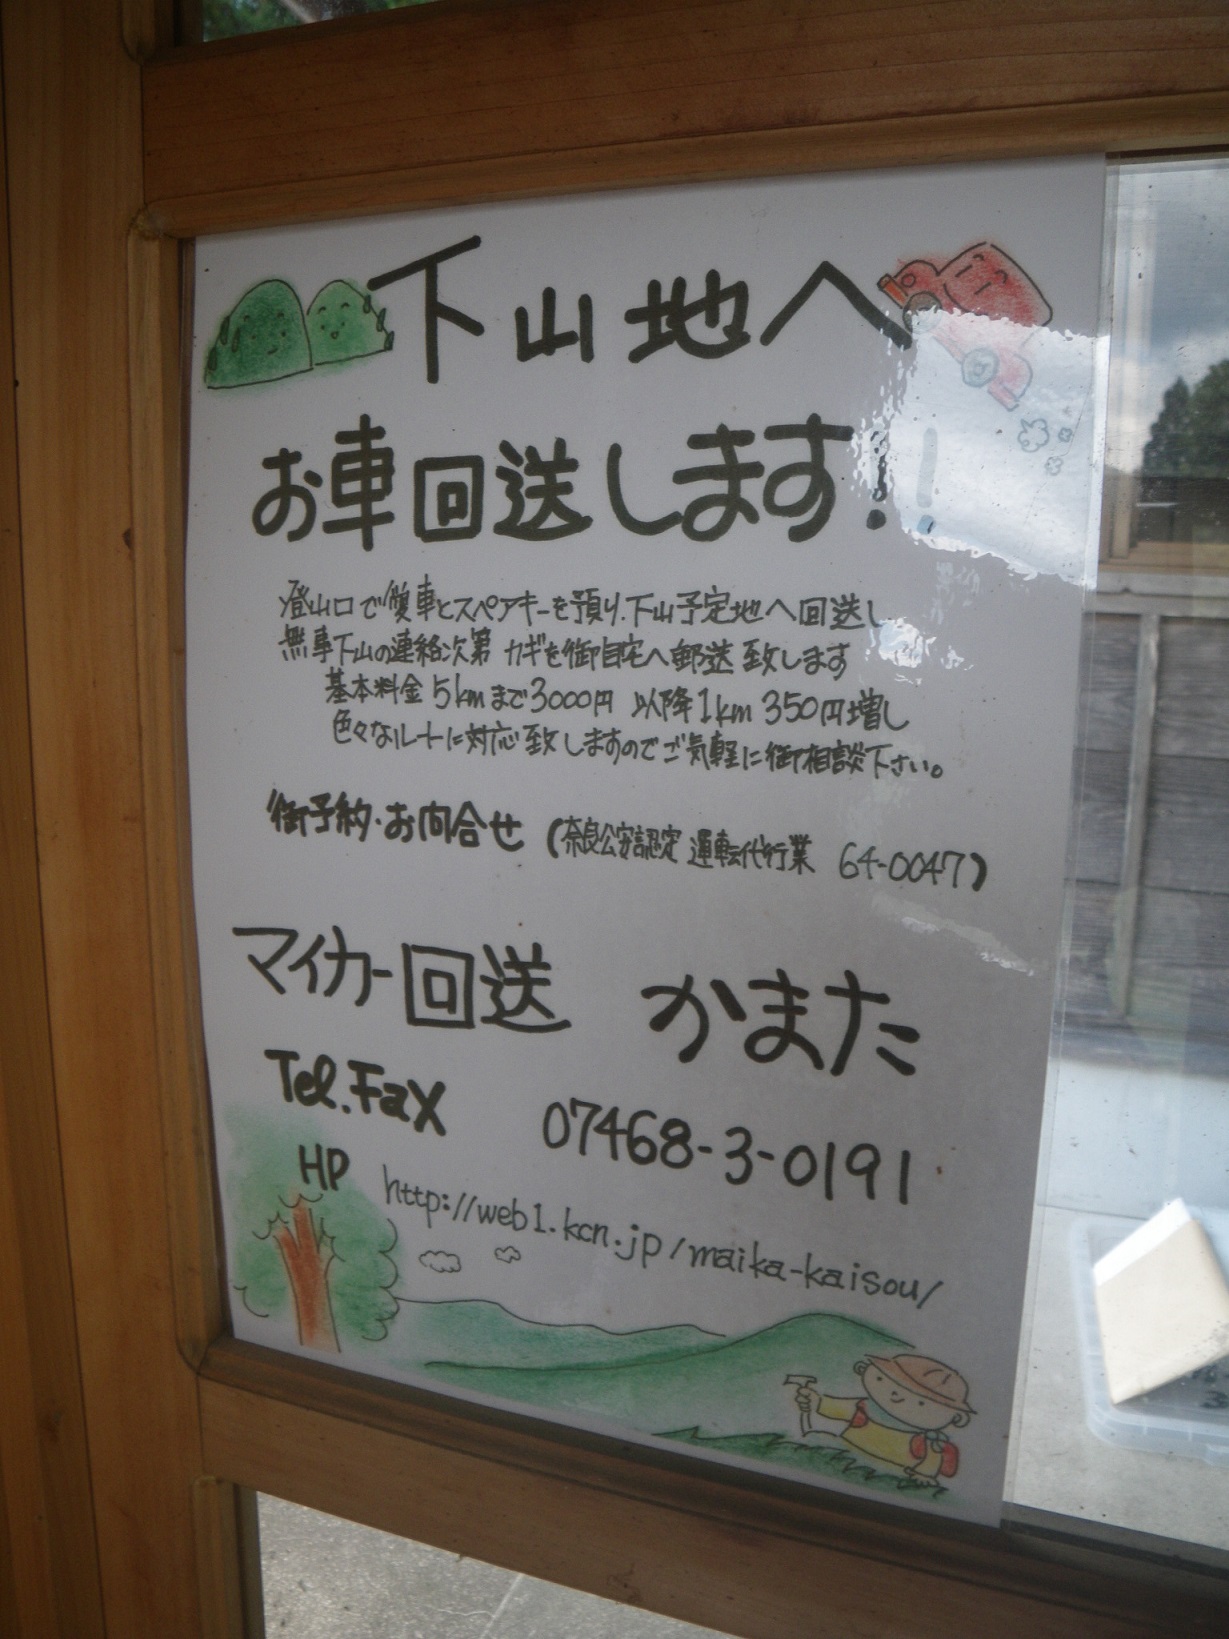 下山地へ
お車回送します!!
登山口で愛車とスペアキーを預り、下山予定地へ回送し
無事下山の連絡次第 カギを御自宅へ郵送致します
基本料金 5kmまで3000円 以降1km 350円増し
色々なルートに対応致しますのでご気軽に御相談下さい。
御予約・お問合せ (奈良公安認定 運転代行業 64-0047)
マイカー回送 かまた
Tel.Fax 07468-3-0191
HP http://web1.kcn.jp/maika-kaisou/